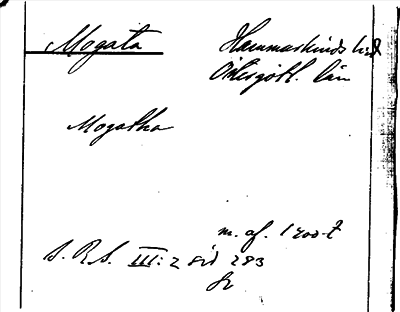 Mogata Hammarkinds hd
Östergötl. län
Mogatha
m. af. 1200-t
S. R. S. III: 2 sid 283